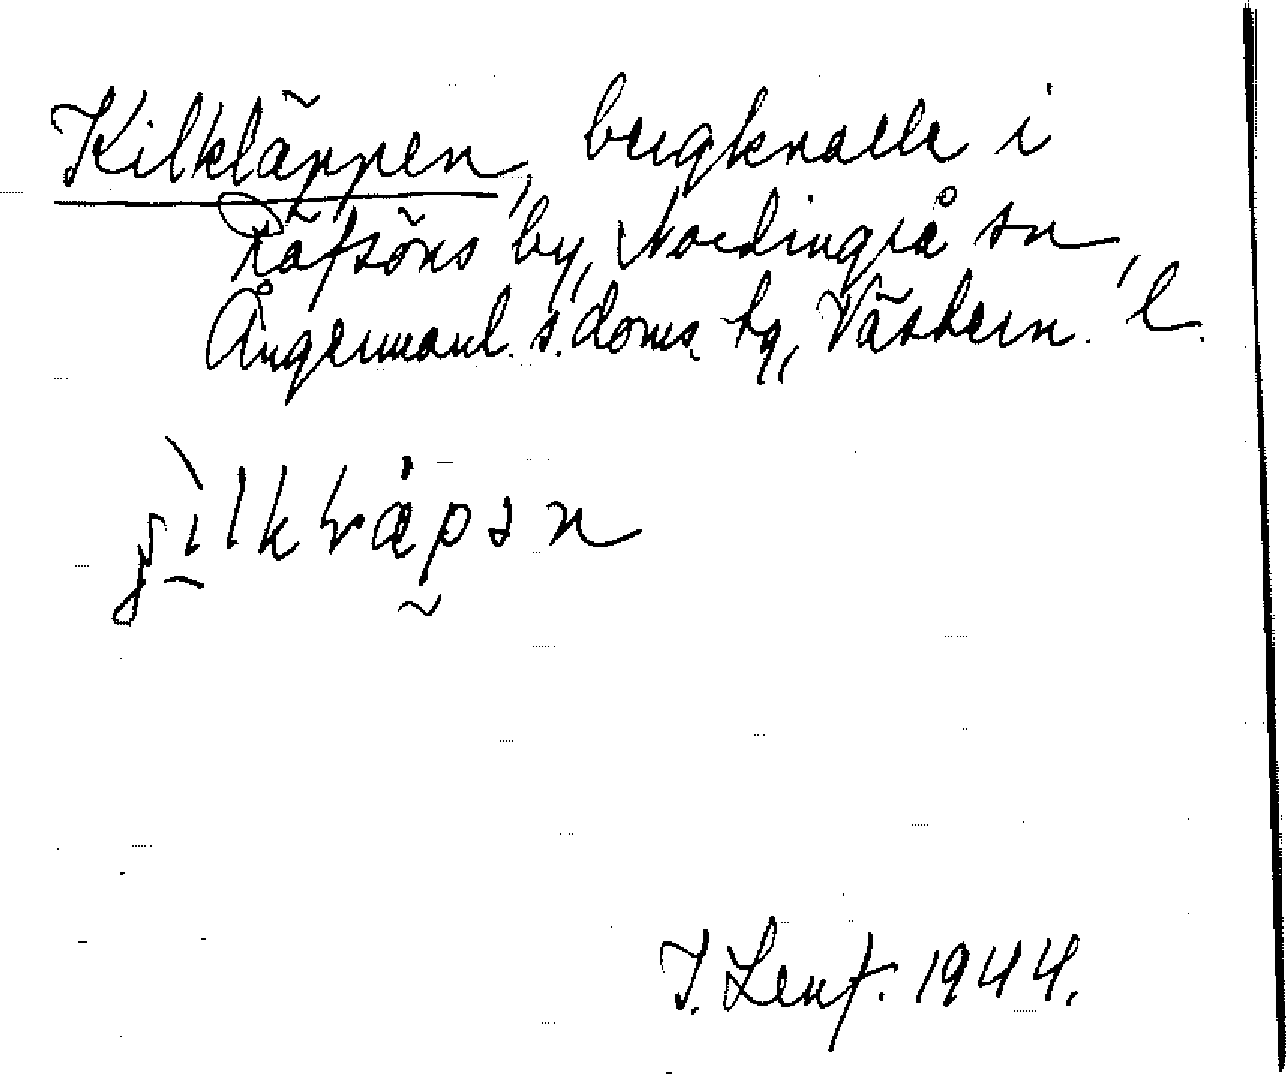 Kilkläppen, bergknalle i
Räfsöns by, Nordingrå sn,
Ångermanl. s. doms. tg, Västern. l.
J. Lenf. 1944.